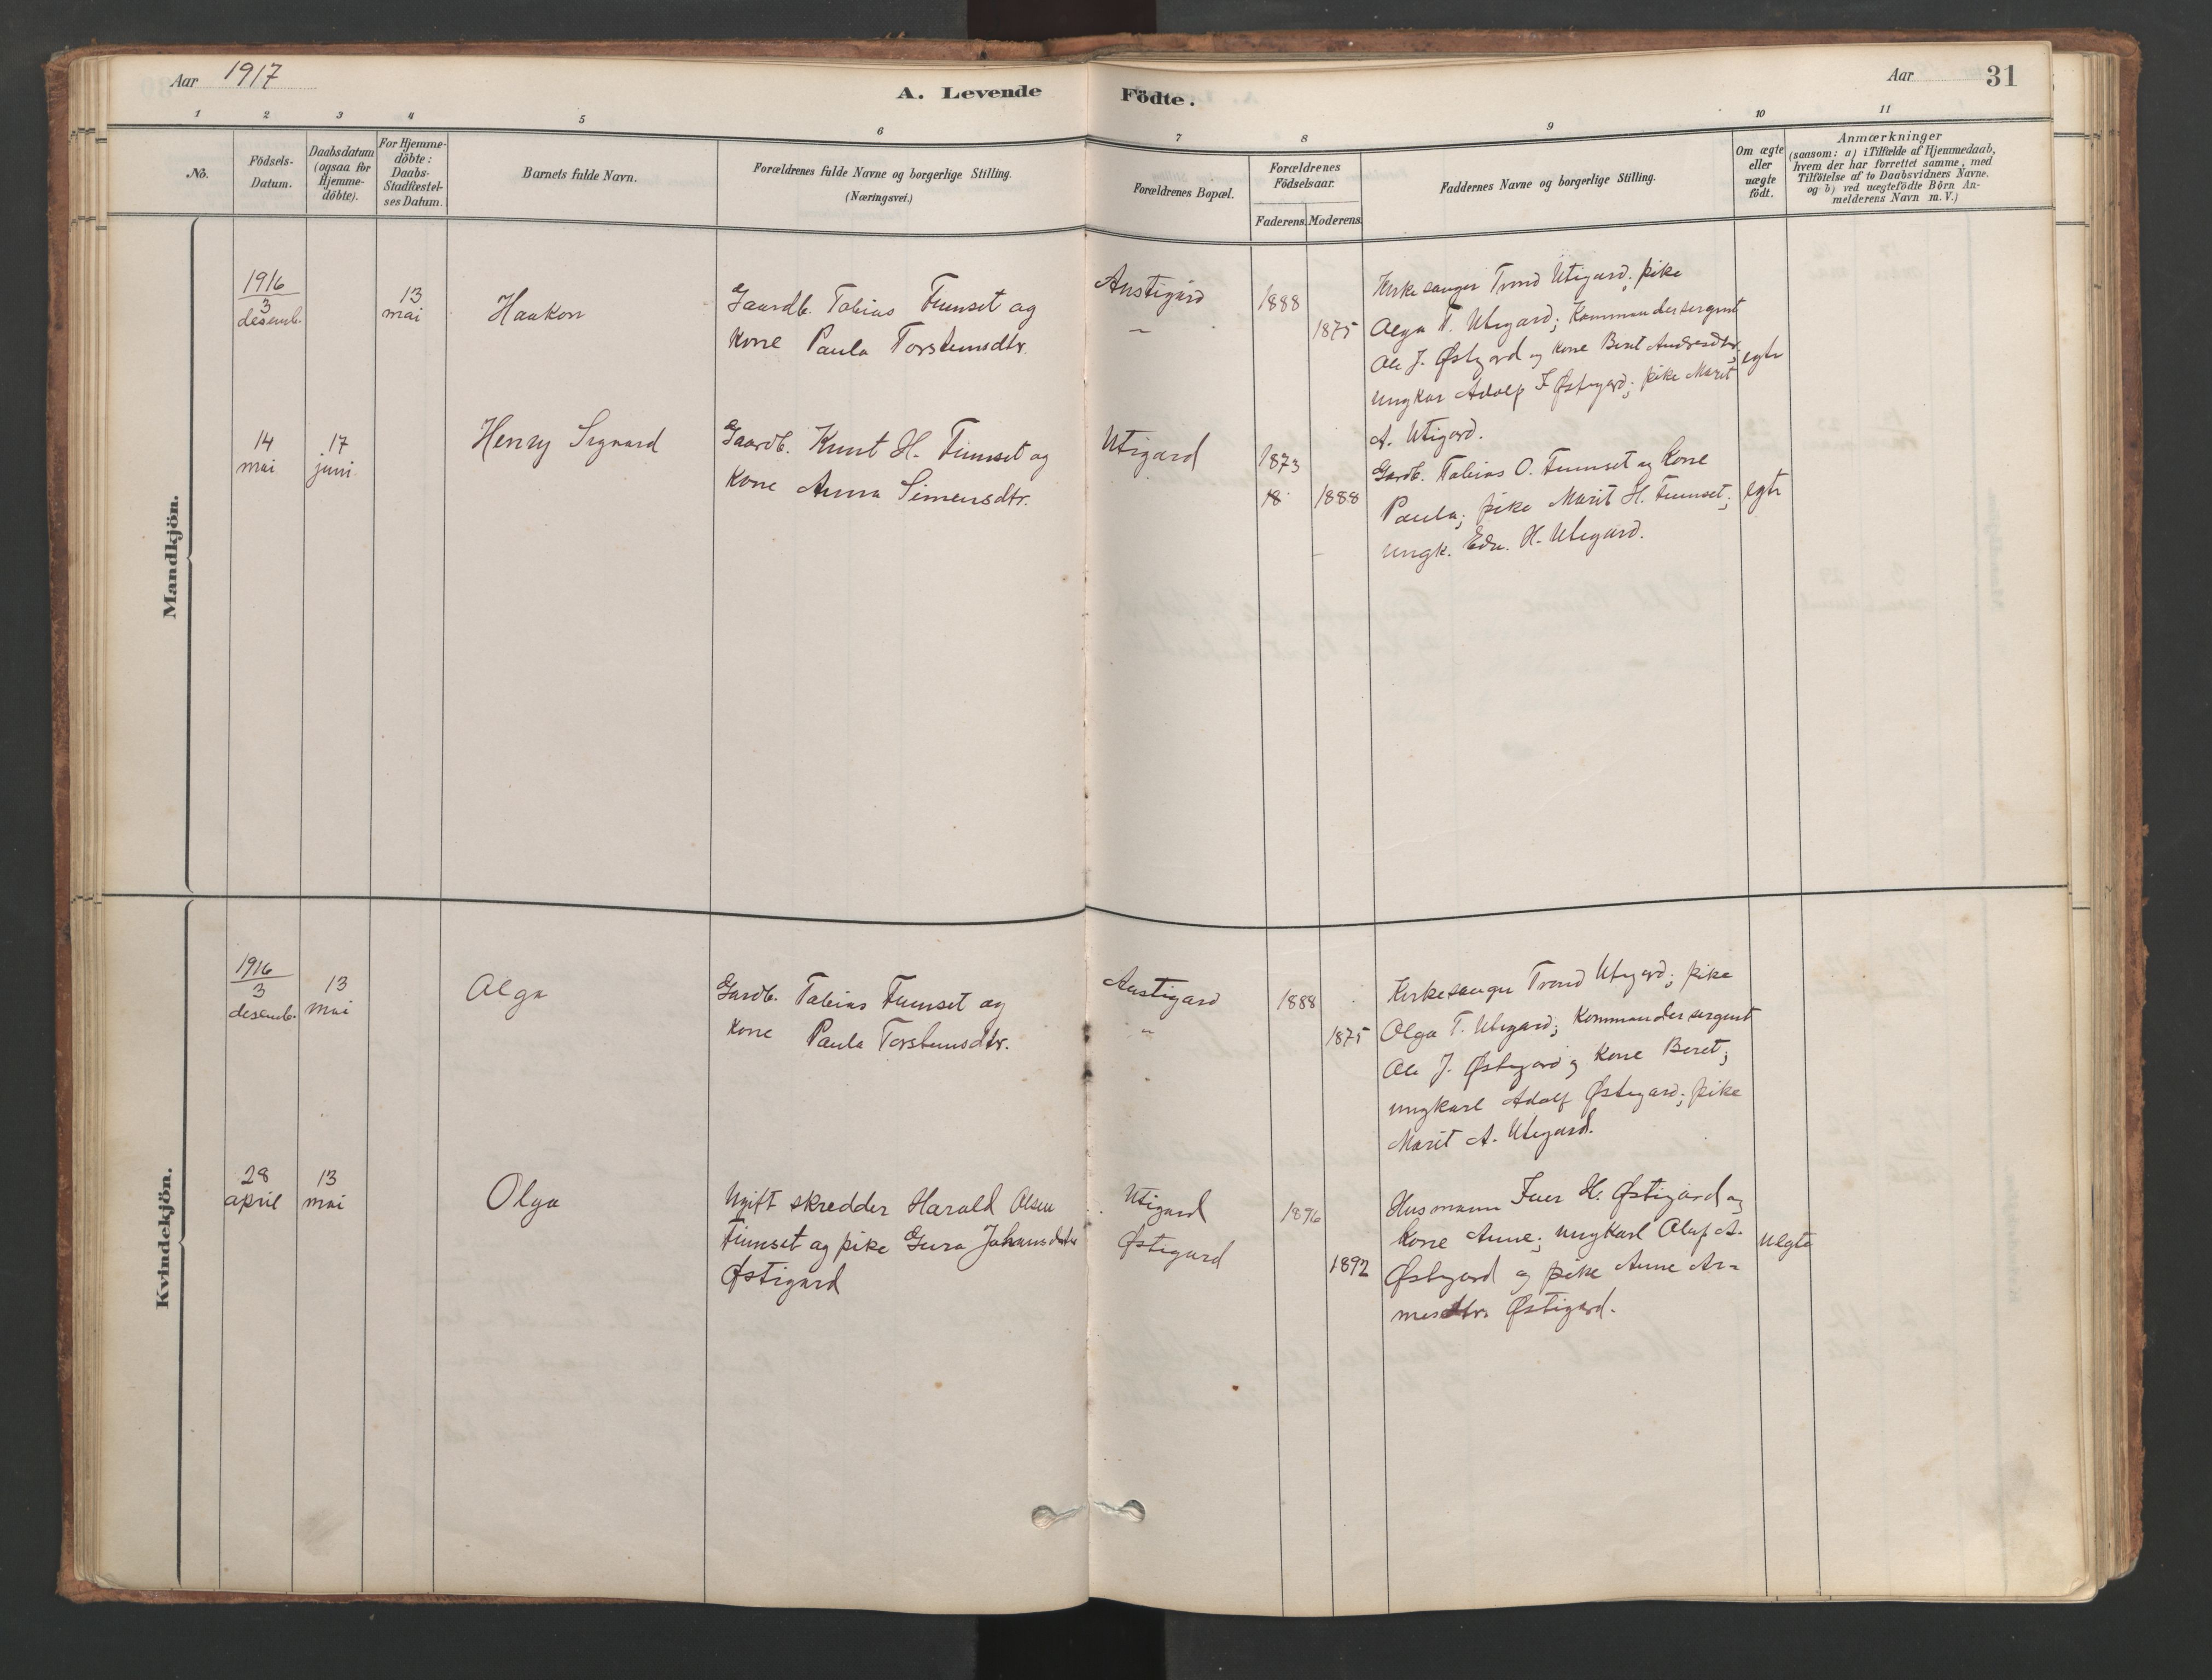 Aar 1917
A. Levende Födte.
Aar 31
1 2 3 4 5 6 7 8 9 10 11
No.
Födsels-
Datum.
Daabsdatum
(ogsaa for
Hjemme-
döbte).
For Hjemme-
döbte:
Daabs-
Stadfæstel-
ses Datum.
Barnets fulde Navn.
Forældrenes fulde Navne og borgerlige Stilling.
(Næringsvei.)
Forældrenes Bopæl.
Forældrenes
Födselsaar.
Faderens. Moderens.
Faddernes Navne og borgerlige Stilling.
Om ægte
eller
uægte
födt.
Anmærkninger
(saasom: a) i Tilfælde af Hjemmedaab,
hvem der har forrettet samme, med
Tilföielse af to Daabsvidners Navne.
og b) ved uægtefödte Börn An-
melderens Navn m.V.)
Mandkjön.
1916
3
desemb.
13
mai
Haakon
Gaardb. Tobias Finnset og
Kone Paula Torsteinsdtr.
Austigard
"
1888
1875
Kirkesanger Trond Utigard; pike
Olga T. Utigard; Kommandersergent
Ole J. Østigard og Kone Beret Andresdtr.
ungkar Adolf I Østigard; pike Marit
A. Utigard.
egte
14
mai
17
juni
Henry Sigvard
Gaardb. Knut H. Finnset og
Kone Anna Simensdtr.
Utigard
1873
18
1888
Gardb. Tobias O. Finnset og Kone
Paula; pike Marit H. Finnset;
ungk. Edv. H. Utigard.
egte
Kvindekjön.
1916
3
desemb.
13
mai
Olga
Gardb. Tobias Finnset og
Kone Paula Torsteinsdtr.
Austigard
"
1888
1875
Kirkesanger Trond Utigard; pike
Olga T. Utigard; Kommandersergent
Ole J. Østigard og Kone Beret;
ungkarl Adolf Østigard; pike
Marit A. Utigard.
28
april
13
mai
Olga
Ugift skredder Harald Olsen
Finnset og pike Gura Johansdatter
Østigard
Utigard
Østigard
1896
1892
Husmann Iver H. Østigard og
Kone Anne; ungkarl Oluf A.
Østigard og pike Anne Ar-
nesdtr. Østigard.
uegte